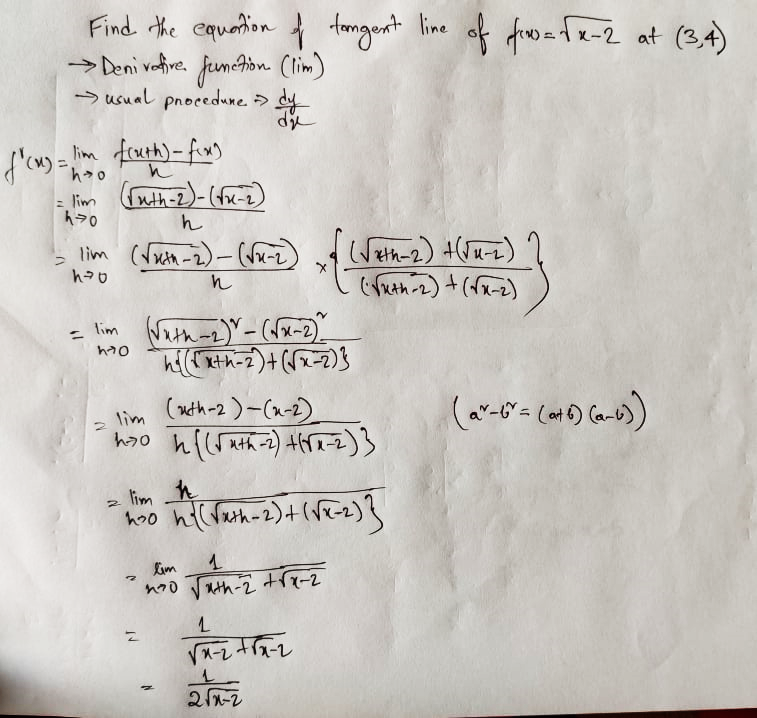 Find the equation of tangent line of f(x)=√x-2 at (3,4)
→ Derivative function (lim)
→ usual procedure ⇒ dy/dx
f'(x) = lim h→0 f(x+h)-f(x)/h
= lim h→0 (√x+h-2)-(√x-2)/h
= lim h→0 (√x+h-2)-(√x-2)/h × {(√x+h-2)+(√x-2)/(√x+h-2)+(√x-2)}
= lim h→0 (√x+h-2)²-(√x-2)²/h{(√x+h-2)+(√x-2)}
= lim h→0 (x+h-2)-(x-2)/h{(√x+h-2)+(√x-2)} (a²-b²=(a+b)(a-b))
= lim h→0 h/h{(√x+h-2)+(√x-2)}
= lim h→0 1/√x+h-2+√x-2
= 1/√x-2+√x-2
= 1/2√x-2